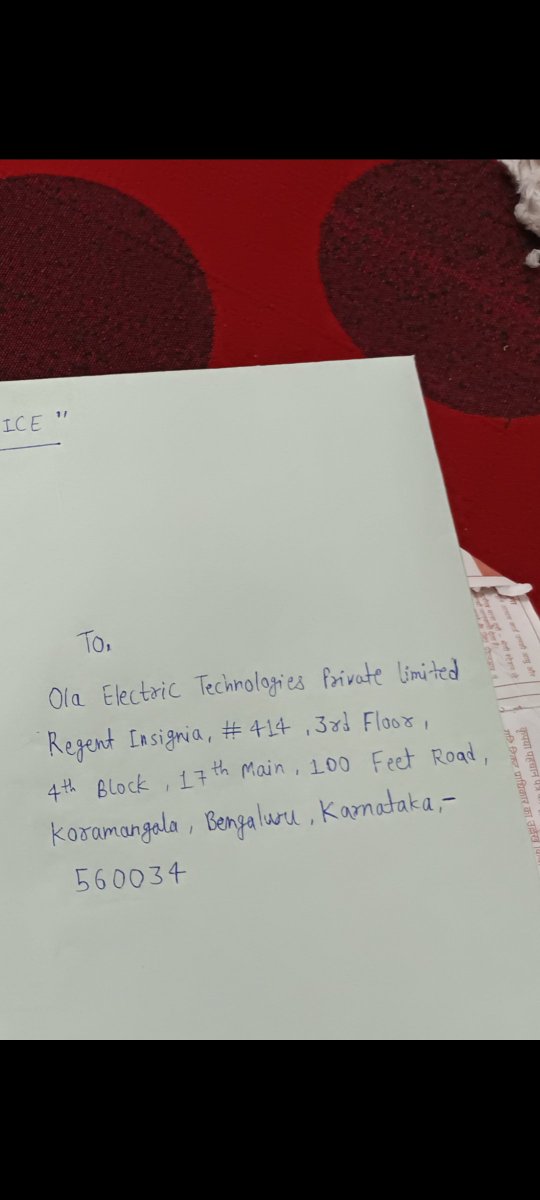 ICE "
To,
Ola Electric Technologies Private limited
Regent Insignia, # 414, 3rd Floor,
4th Block, 17th Main, 100 Feet Road,
Koramangala, Bengaluru, Karnataka,-
560034